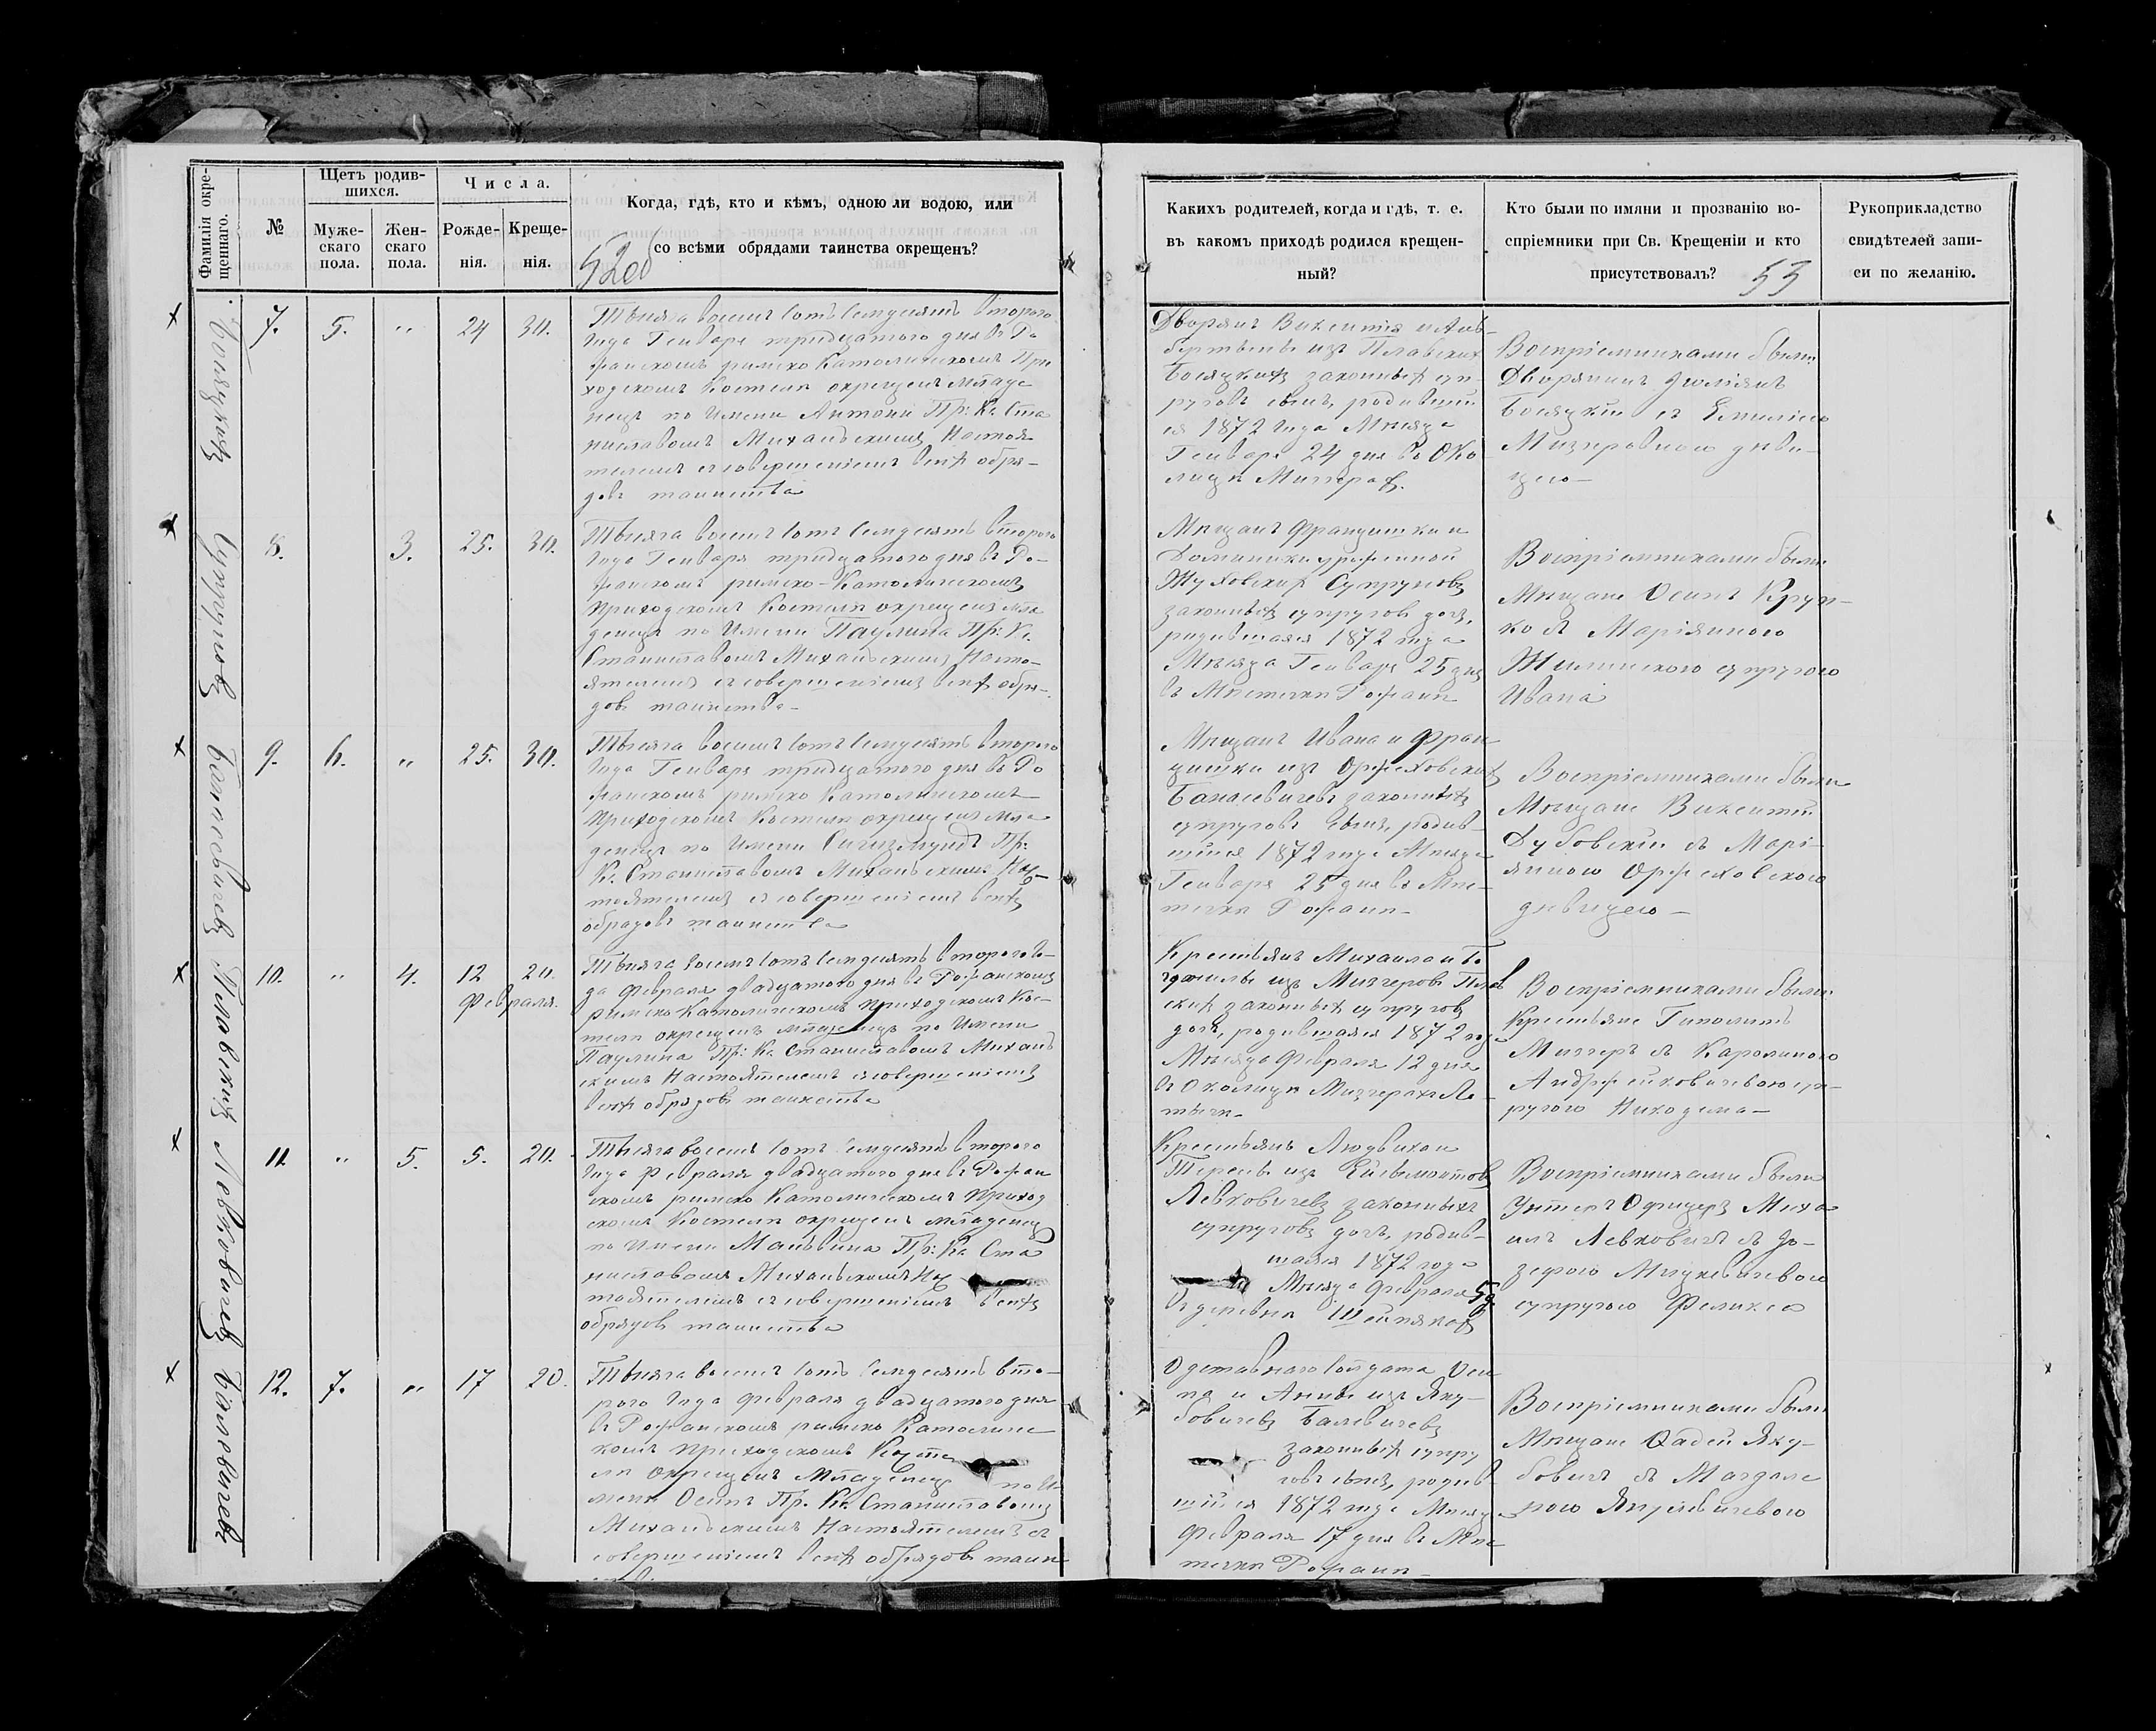 Фамилія окре-
щеннаго.
№
Щетъ родив-
шихся.
Муже-
скаго
пола.
Жен-
скаго
пола.
Числа.
Рожде-
нія.
Креще-
нія.
Когда, гдѣ, кто и кѣмъ, одною ли водою, или
со всѣми обрядами таинства окрещенъ?
52об
Босяцкихъ
7. 5. „ 24 30.
Тысяча восемь сотъ семдесятъ второго
года Генваря тридцатого дня въ Ро
жанскомъ римско Католическомъ При
ходскомъ Костелѣ окрещенъ младе
нецъ по Имени Антони Пр: Кс. Ста
ниславомъ Михальскимъ Настоя
телемъ съ совершеніемъ всѣхъ обря-
довъ таинства
Супруновъ
8. 3. 25. 30.
Тысяча восемь сотъ семдесятъ второго
года Генваря тридцатого дня въ Ро-
жанскомъ римско-Католическомъ
приходскомъ Костелѣ окрещенъ мла
денецъ по Имени Паулина Пр: Кс.
Станиславомъ Михальскимъ Насто-
ятелемъ съ совершеніемъ всѣхъ обря-
довъ таинства-
Банасевичевъ
9. 6. „ 25. 30.
Тысяча восемь сотъ семдесятъ второго
года Генваря тридцатого дня въ Ро
жанскомъ римско Католическомъ
приходскомъ Костелѣ окрещенъ мла
денецъ по Имени Сигизмундъ Пр:
Кс. Станиславомъ Михальскимъ Нас-
тоятелемъ съ совершеніемъ всѣхъ
обрядовъ таинства
Плавскихъ
10. „ 4. 12 20.
Февраля.
Тысяча восемь сотъ семдесятъ второго го-
да Февраля двадцатого дня въ Рожанскомъ
римско Католическомъ приходскомъ Кос-
телѣ окрещенъ младенецъ по Имени
Паулина Пр: Кс. Станиславомъ Михаль
скимъ Настоятелемъ съ совершеніемъ
всѣхъ обрядовъ таинства
Левковичевъ
11. „ 5. 5. 20.
Тысяча восемь сотъ семдесятъ второго
года Февраля двадцатого дня въ Рожан
скомъ римско Католическомъ приход
скомъ Костелѣ окрещенъ младенецъ
по Имени Мальвина Пр: Кс. Ста
ниславомъ Михальскимъ Нас
тоятелемъ съ совершеніемъ всѣхъ
обрядовъ таинства
Балевичевъ
12. 7. „ 17 20.
Тысяча восемь сотъ семдесятъ вто-
рого года Февраля двадцатого дня
въ Рожанскомъ римско Католичес
комъ приходскомъ Косте
лѣ окрещенъ Младенецъ по И-
мени Осипъ Пр. Кс. Станиславомъ
Михальскимъ Настоятелемъ съ
совершеніемъ всѣхъ обрядовъ таин
Какихъ родителей, когда и гдѣ, т. е.
въ какомъ приходѣ родился крещен-
ный?
Кто были по имяни и прозванію во-
спріемники при Св. Крещеніи и кто
присутствовалъ?
53
Рукоприкладство
свидѣтелей запи-
си по желанію.
Дворянъ Викентія и Аль-
бертыны изъ Плавскихъ
Босяцкихъ законныхъ суп-
руговъ сынъ, родивший
ся 1872 года Мѣсяца
Генваря 24 дня въ Око-
лицѣ Мизгерах.
Воспріемниками были
Дворянинъ Юліянъ
Босяцкій съ Емиліею
Мизгеровною дѣви-
цею-
Мѣщанъ Францишка и
Доминики урожденной
Жуковских Супруновъ
законныхъ супруговъ дочь,
родившаяся 1872 года
Мѣсяца Генваря 25 дня
въ Мѣстечкѣ Рожанѣ
Воспріемниками были
Мѣщане Осипъ Круп-
ко съ Маріянною
Жилинского супругою
Ивана
Мѣщанъ Ивана и Фран
цишки изъ Оржеховских
Банасевичевъ законныхъ
супруговъ сынъ, родив-
шійся 1872 года Мѣсяца
Генваря 25 дня въ Мѣс-
течкѣ Рожанѣ-
Воспріемниками были
Мѣщане Викентій
Дубовскій съ Марі-
янною Оржеховского
дѣвицею-
Крестьянъ Михаила и
изъ Мизгеровъ Плав
скихъ законныхъ супруговъ
дочь, родившаяся 1872 года
Мѣсяца Февраля 12 дня
въ Околицѣ Мизгерахъ
Воспріемниками были
Крестьяне Гиполитъ
Мизгеръ съ Каролиною
Андржейковичевою суп-
ругою Никодема-
Крестьянъ Людвика и
Тересы изъ Ейсымонтовъ
Левковичевъ законныхъ
супруговъ дочь, родив-
шаяся 1872 года
Мѣсяца Февраля 5 д.
въ деревнѣ Шейпякахъ
Воспріемниками были
Унтеръ Офицеръ Миха
илъ Левковичъ съ Ю-
зефою Мицкевичевою
супругою Феликса
Отставного солдата Оси
па и Анны изъ Яку-
бовичевъ Балевичевъ
законныхъ супру
говъ сынъ, родив
шійся 1872 года Мѣсяца
Февраля 17 дня въ Мѣс
течкѣ Рожанѣ-
Воспріемниками были
Мѣщане Фадей Яку-
бовичъ съ Магдале
ною